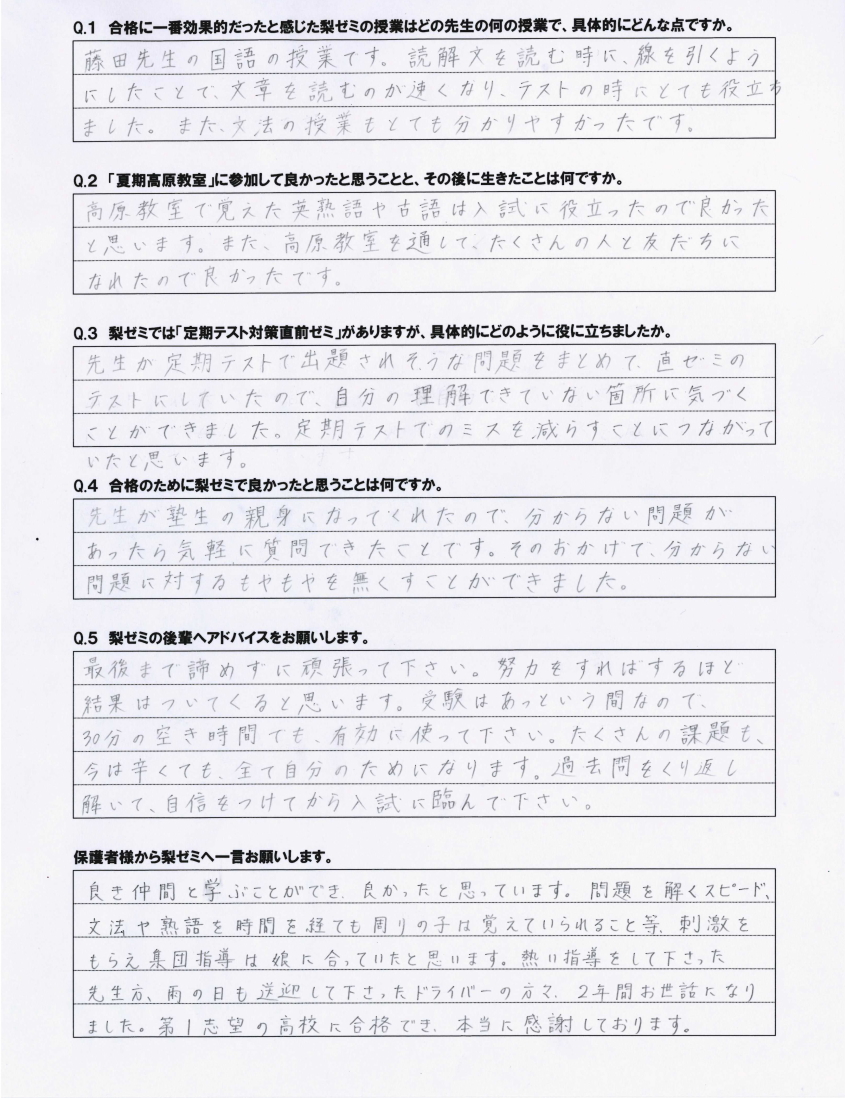 Q.1 合格に一番効果的だったと感じた梨ゼミの授業はどの先生の何の授業で、具体的にどんな点ですか。
藤田先生の国語の授業です。読解文を読む時に、線を引くよう
にしたことで、文章を読むのが速くなり、テストの時にとても役立ち
ました。また、文法の授業もとても分かりやすかったです。
Q.2 「夏期高原教室」に参加して良かったと思うことと、その後に生きたことは何ですか。
高原教室で覚えた英熟語や古語は入試に役立ったので良かった
と思います。また、高原教室を通して、たくさんの人と友だちに
なれたので良かったです。
Q.3 梨ゼミでは「定期テスト対策直前ゼミ」がありますが、具体的にどのように役に立ちましたか。
先生が定期テストで出題されそうな問題をまとめて、直ゼミの
テストにしていたので、自分の理解できていない箇所に気づく
ことができました。定期テストでのミスを減らすことにつながって
いたと思います。
Q.4 合格のために梨ゼミで良かったと思うことは何ですか。
先生が塾生の親身になってくれたので、分からない問題が
あったら気軽に質問できたことです。そのおかげで、分からない
問題に対するもやもやを無くすことができました。
Q.5 梨ゼミの後輩へアドバイスをお願いします。
最後まで諦めずに頑張って下さい。努力をすればするほど
結果はついてくると思います。受験はあっという間なので、
30分の空き時間でも、有効に使って下さい。たくさんの課題も、
今は辛くても、全て自分のためになります。過去問をくり返し
解いて、自信をつけてから入試に臨んで下さい。
保護者様から梨ゼミへ一言お願いします。
良き仲間と学ぶことができ、良かったと思っています。問題を解くスピード、
文法や熟語を時間を経ても周りの子は覚えていられること等、刺激を
もらえ集団指導は娘に合っていたと思います。熱い指導をして下さった
先生方、雨の日も送迎して下さったドライバーの方々、2年間お世話になり
ました。第1志望の高校に合格でき、本当に感謝しております。